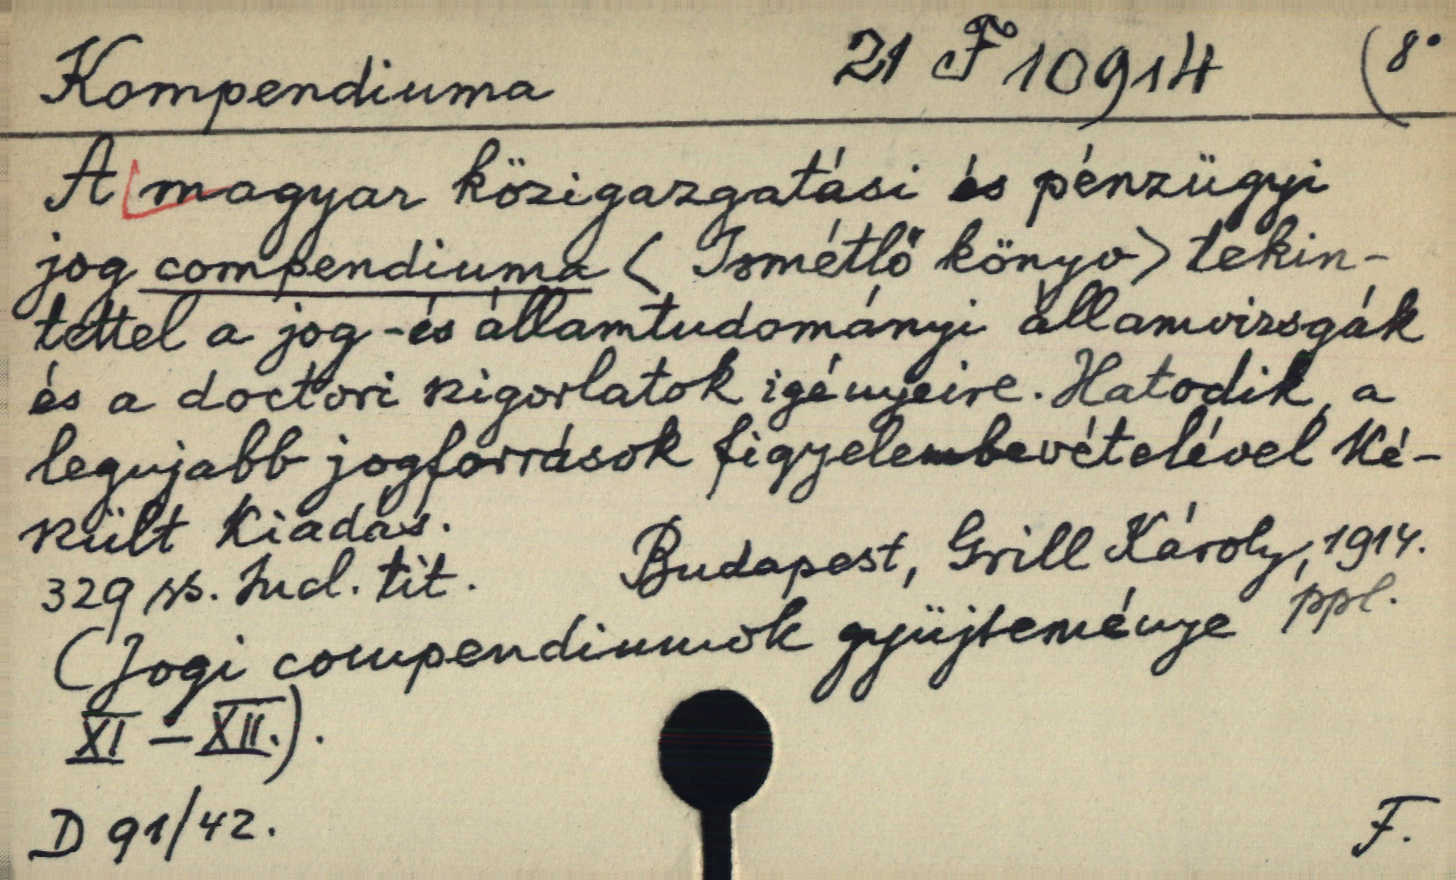 Kompendiuma 21 F 10914 (8°
A magyar közigazgatási és pénzügyi
jog compendiuma (Ismétlő könyv) tekin-
tettel a jog-és államtudományi államvizsgák
és a doctori szigorlatok igényeire. Hatodik, a
legujabb jogforrások figyelembevételével ké-
szült kiadás.
Budapest, Grill Károly, 1914.
329 ss. Incl. tit. ppl.
(Jogi compendiumok gyüjteménye
XI – XII.).
D 91/42. F.